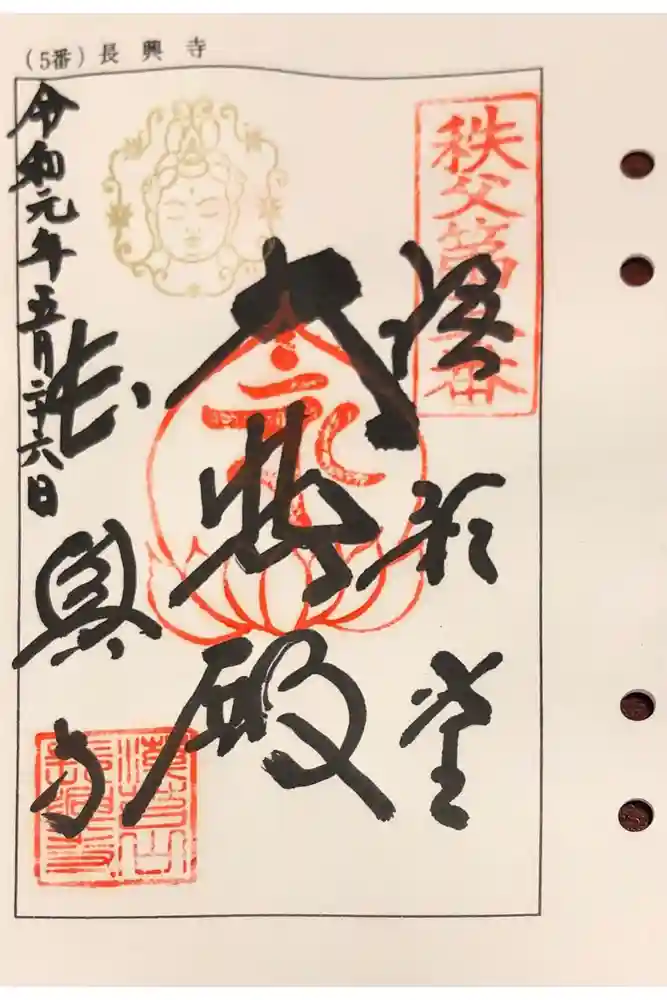 (5番) 長興寺
秩父第五番
語歌堂
大悲殿
長興寺
令和元年五月二十六日